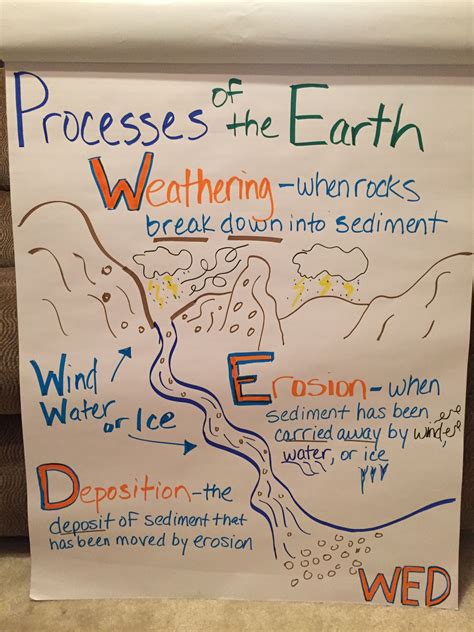 Processes of the Earth
Weathering - when rocks
break down into sediment
Wind
Water
or Ice
Erosion - when
sediment has been
carried away by wind,
water, or ice
Deposition - the
deposit of sediment that
has been moved by erosion
WED